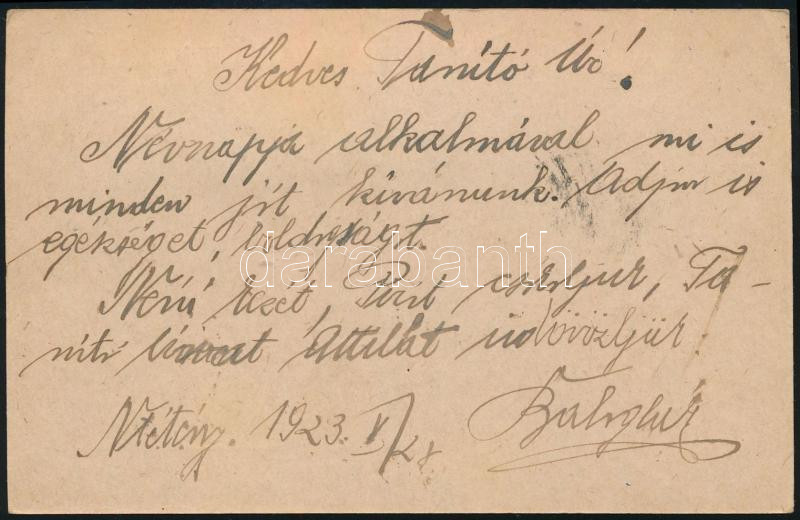 Kedves Tanító Úr!
Névnapja alkalmával mi is
minden jót kívánunk. Adjon is
egekséget, boldogságt.
Néni kezét, csókoljuk, Ta-
nító Attilát üdvözöljük
Ntétény. 1923. V/28.
darabanth